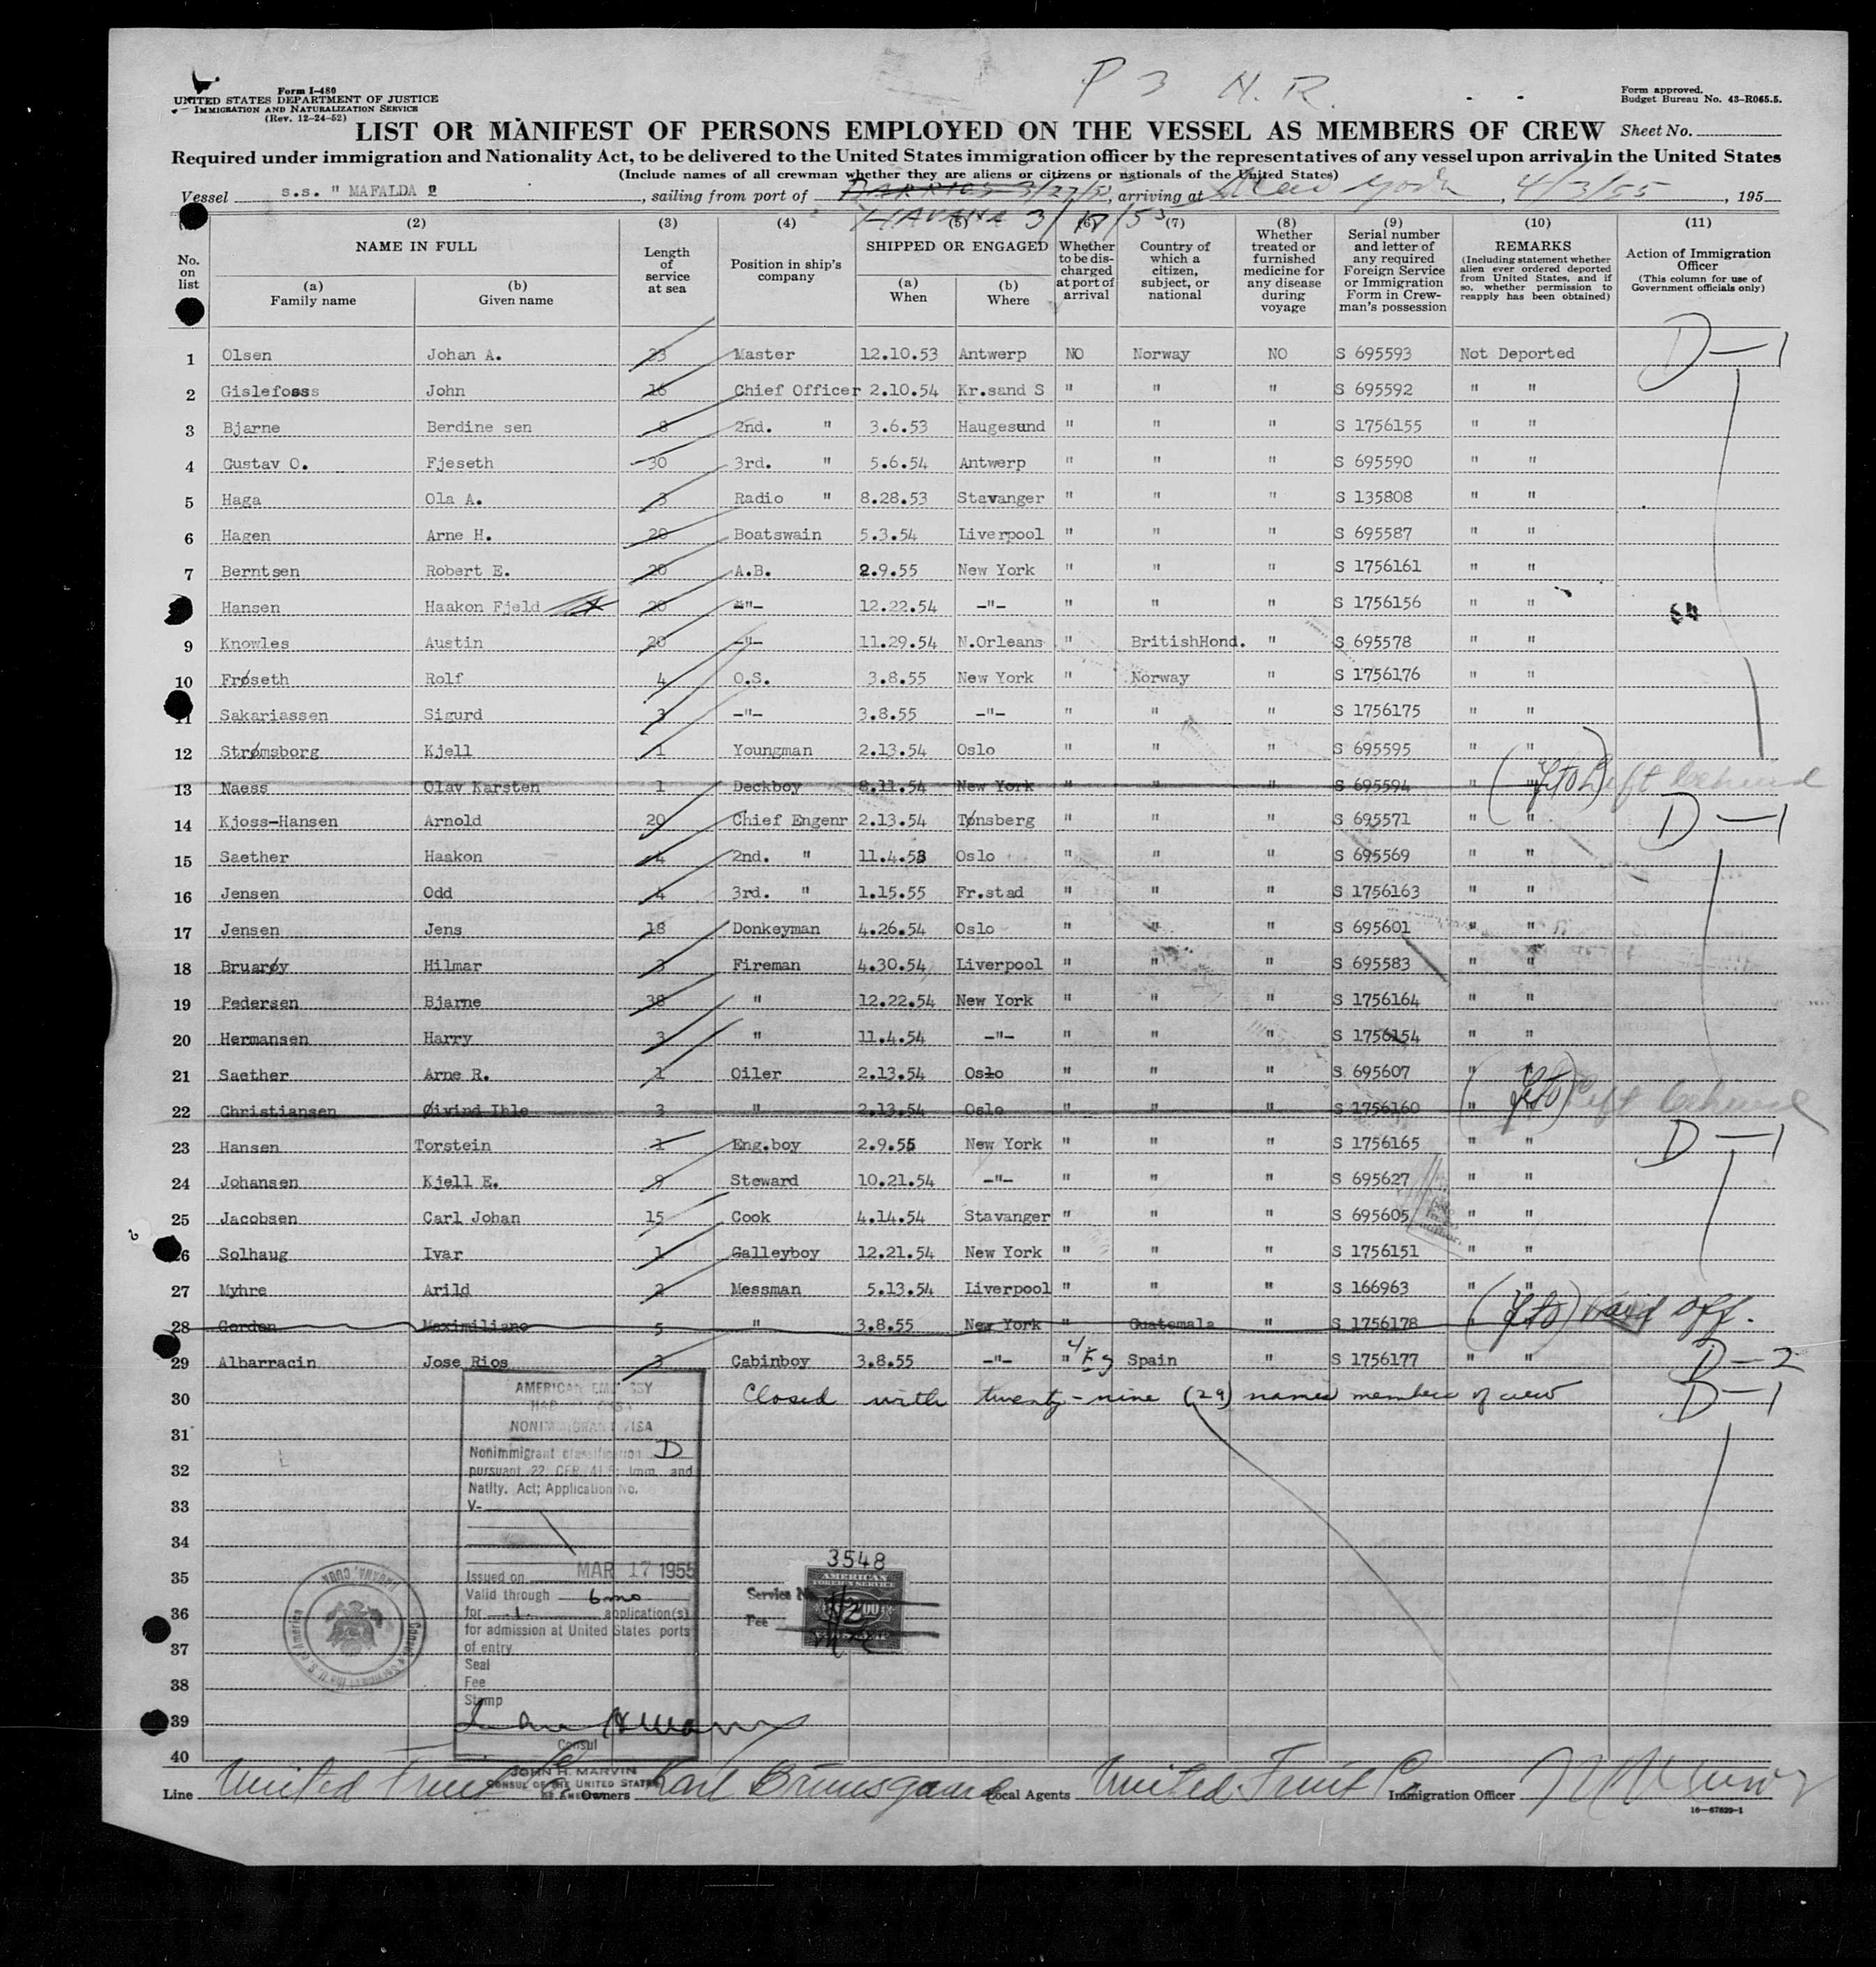 P 3 N. R.
Form I-480
UNITED STATES DEPARTMENT OF JUSTICE
IMMIGRATION AND NATURALIZATION SERVICE
(Rev. 12-24-52)
Form approved.
Budget Bureau No. 43-R065.5.
LIST OR MANIFEST OF PERSONS EMPLOYED ON THE VESSEL AS MEMBERS OF CREW Sheet No.
Required under immigration and Nationality Act, to be delivered to the United States immigration officer by the representatives of any vessel upon arrival in the United States
(Include names of all crewman whether they are aliens or citizens or nationals of the United States)
Vessel s.s. " MAFALDA , sailing from port of BARRIOS 3/27/55, arriving at New York, 4/3/55, 195
HAVANA 3/18/53
(2) (3) (4) (5) (6) (7) (8) (9) (10) (11)
No. on list
NAME IN FULL
(a) Family name
(b) Given name
Length of service at sea
Position in ship's company
SHIPPED OR ENGAGED
(a) When
(b) Where
Whether to be discharged at port of arrival
Country of which a citizen, subject, or national
Whether treated or furnished medicine for any disease during voyage
Serial number and letter of any required Foreign Service or Immigration Form in Crewman's possession
REMARKS
(Including statement whether alien ever ordered deported from United States, and if so, whether permission to reapply has been obtained)
Action of Immigration Officer
(This column for use of Government officials only)
1 Olsen Johan A. 23 Master 12.10.53 Antwerp NO Norway NO S 695593 Not Deported D-1
2 Gislefosss John 16 Chief Officer 2.10.54 Kr.sand S " " " S 695592 " "
3 Bjarne Berdine sen 8 2nd. " 3.6.53 Haugesund " " " S 1756155 " "
4 Gustav O. Fjeseth 30 3rd. " 5.6.54 Antwerp " " " S 695590 " "
5 Haga Ola A. 3 Radio " 8.28.53 Stavanger " " " S 135808 " "
6 Hagen Arne H. 20 Boatswain 5.3.54 Liverpool " " " S 695587 " "
7 Berntsen Robert E. 20 A.B. 2.9.55 New York " " " S 1756161 " "
Hansen Haakon Fjeld 20 -"- 12.22.54 -"- " " " S 1756156 " "
9 Knowles Austin 20 -"- 11.29.54 N.Orleans " BritishHond. " S 695578 " "
10 Frøseth Rolf 4 O.S. 3.8.55 New York " Norway " S 1756176 " "
11 Sakariassen Sigurd 3 -"- 3.8.55 -"- " " " S 1756175 " "
12 Strømsborg Kjell 1 Youngman 2.13.54 Oslo " " " S 695595 " "
13 Naess Olav Karsten 1 Deckboy 8.11.54 New York " " " S 695594 " " left behind
14 Kjoss-Hansen Arnold 20 Chief Engenr 2.13.54 Tønsberg " " " S 695571 " " D-1
15 Saether Haakon 4 2nd. " 11.4.53 Oslo " " " S 695569 " "
16 Jensen Odd 4 3rd. " 1.15.55 Fr.stad " " " S 1756163 " "
17 Jensen Jens 18 Donkeyman 4.26.54 Oslo " " " S 695601 " "
18 Bruarøy Hilmar 3 Fireman 4.30.54 Liverpool " " " S 695583 " "
19 Pedersen Bjarne 38 " 12.22.54 New York " " " S 1756164 " "
20 Hermansen Harry 3 " 11.4.54 -"- " " " S 1756154 " "
21 Saether Arne R. 1 Oiler 2.13.54 Oslo " " " S 695607 " "
22 Christiansen Øivind Ihle 3 " 2.13.54 Oslo " " " S 1756160 " left behind
23 Hansen Torstein 1 Eng.boy 2.9.55 New York " " " S 1756165 " " D-1
24 Johansen Kjell E. 9 Steward 10.21.54 -"- " " " S 695627 " "
25 Jacobsen Carl Johan 15 Cook 4.14.54 Stavanger " " " S 695605 " "
26 Solhaug Ivar 1 Galleyboy 12.21.54 New York " " " S 1756151 " "
27 Myhre Arild 2 Messman 5.13.54 Liverpool " " " S 166963 " "
28 Gordon Maximiliano 5 " 3.8.55 New York " Guatemala " S 1756178 " paid off.
29 Albarracin Jose Rios 3 Cabinboy 3.8.55 -"- " Spain " S 1756177 " " D-2
30 Closed with twenty-nine (29) names members of crew D-1
31
32
33
34
35
36
37
38
39
40
AMERICAN EMBASSY
NONIMMIGRANT VISA
Nonimmigrant classification D
pursuant 22 CFR 41.5; Imm. and
Natlty. Act; Application No.
V-
Issued on MAR 17 1955
Valid through 6 mo
for 1 application(s)
for admission at United States ports
of entry
Seal
Fee
Stamp
Consul
JOHN H. MARVIN
CONSUL OF THE UNITED STATES
OF AMERICA
HAVANA, CUBA
3548
AMERICAN
FOREIGN SERVICE
Service No.
Fee
Line United Fruit Co Owners Karl Bruusgaard Local Agents United Fruit Co Immigration Officer
16-67629-1